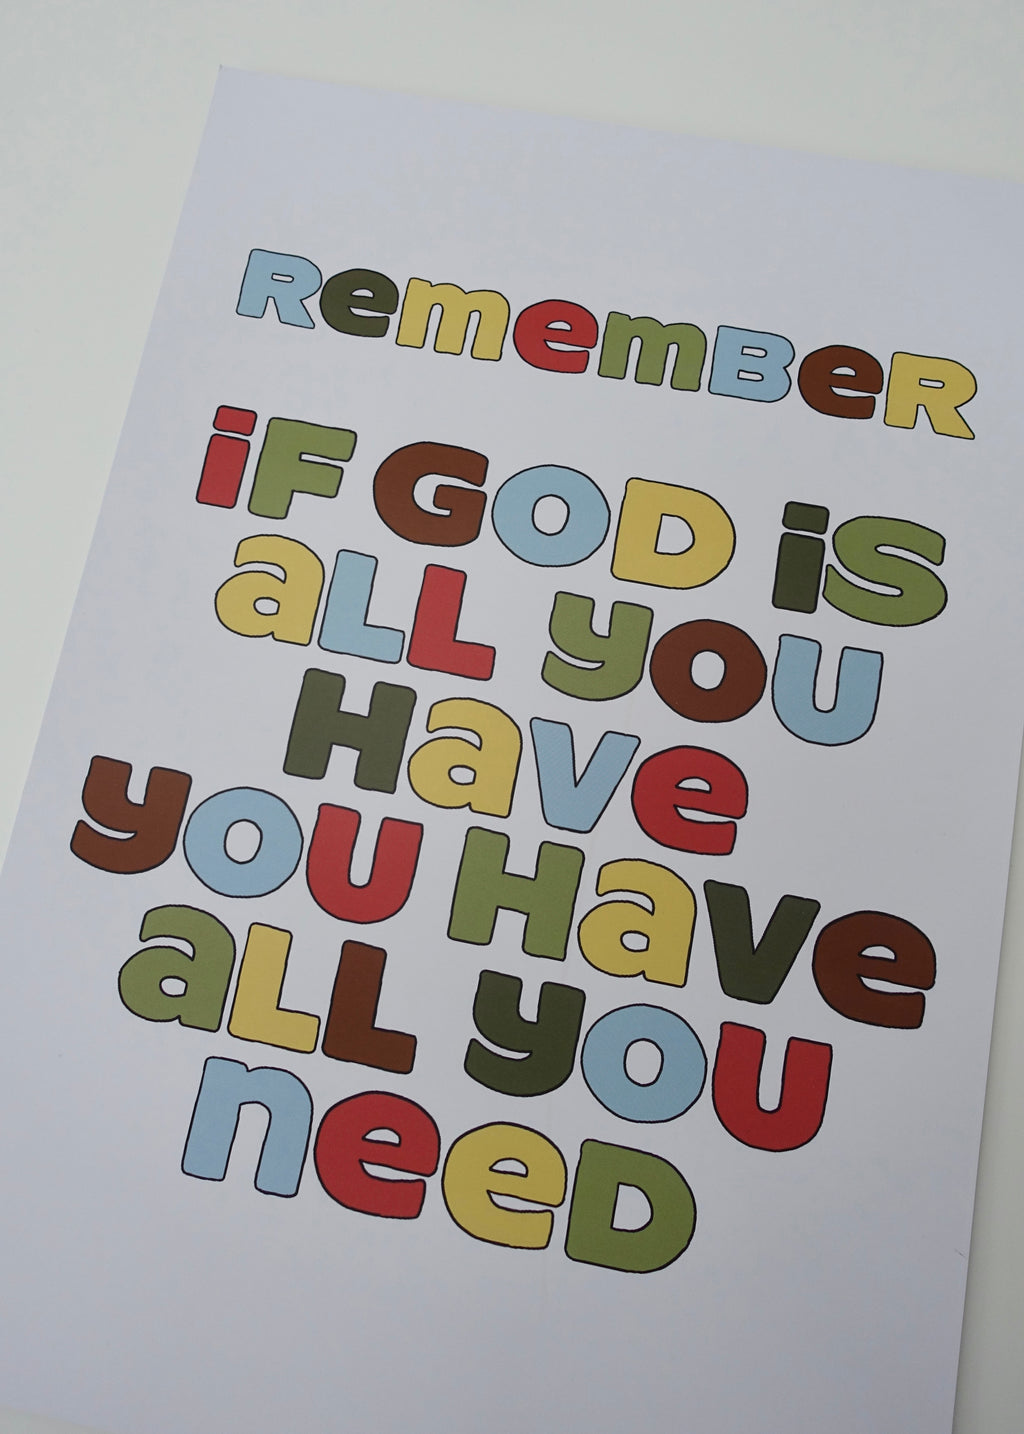 RemembeR
iF GOD iS
aLL you
Have
you Have
aLL you
neeD